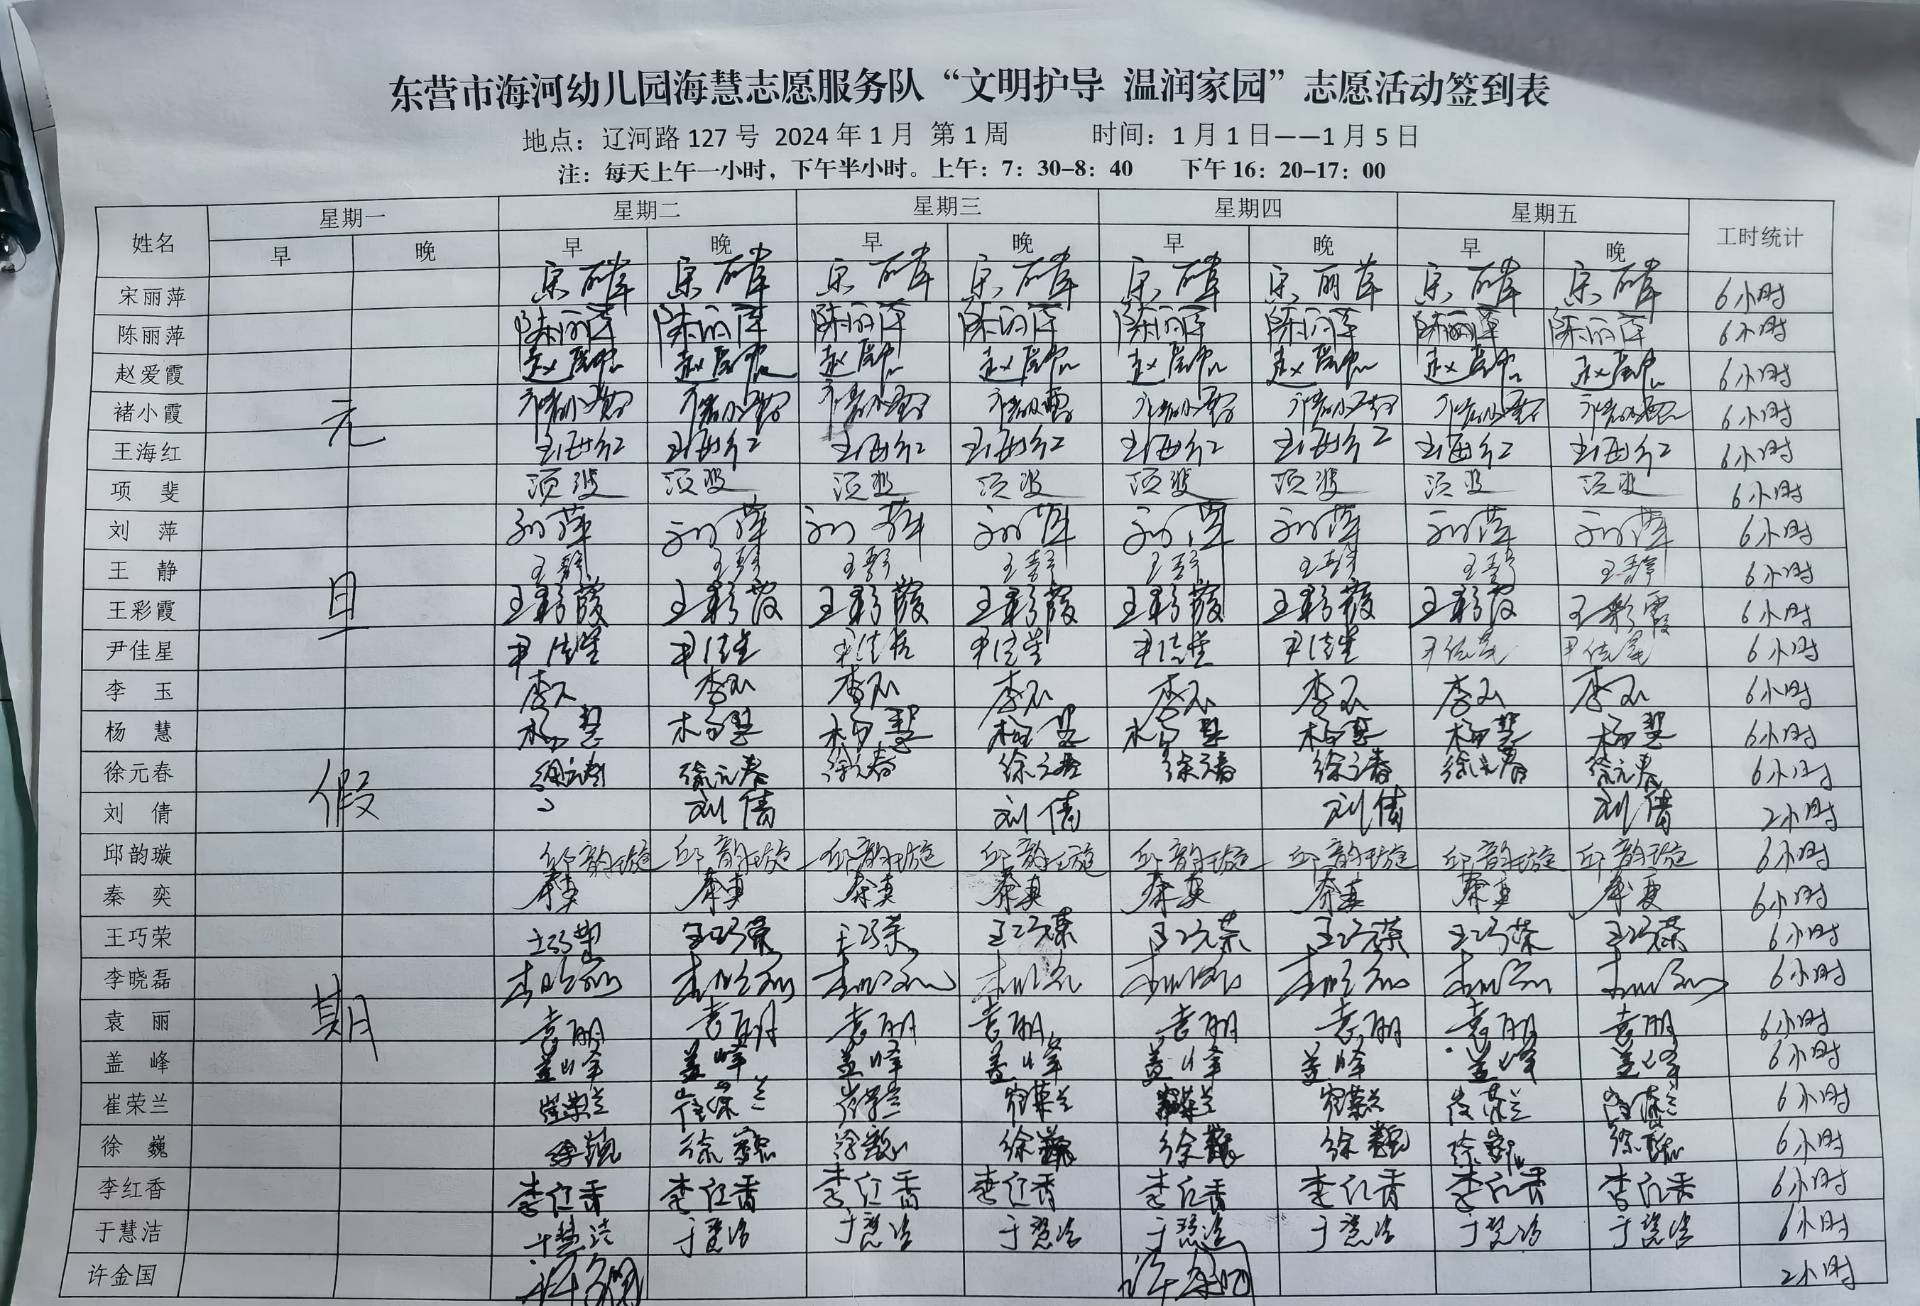 东营市海河幼儿园海慧志愿服务队“文明护导 温润家园”志愿活动签到表
地点：辽河路127号 2024年1月 第1周 时间：1月1日——1月5日
注：每天上午一小时，下午半小时。上午：7：30-8：40 下午16：20-17：00
姓名 星期一 星期二 星期三 星期四 星期五 工时统计
早 晚 早 晚 早 晚 早 晚 早 晚
宋丽萍 宋丽萍 宋丽萍 宋丽萍 宋丽萍 宋丽萍 宋丽萍 宋丽萍 宋丽萍 6小时
陈丽萍 陈丽萍 陈丽萍 陈丽萍 陈丽萍 陈丽萍 陈丽萍 陈丽萍 陈丽萍 6小时
赵爱霞 赵爱霞 赵爱霞 赵爱霞 赵爱霞 赵爱霞 赵爱霞 赵爱霞 赵爱霞 6小时
褚小霞 元 褚小霞 褚小霞 褚小霞 褚小霞 褚小霞 褚小霞 褚小霞 褚小霞 6小时
王海红 王海红 王海红 王海红 王海红 王海红 王海红 王海红 王海红 6小时
项斐 项斐 项斐 项斐 项斐 项斐 项斐 项斐 项斐 6小时
刘萍 刘萍 刘萍 刘萍 刘萍 刘萍 刘萍 刘萍 刘萍 6小时
王静 王静 王静 王静 王静 王静 王静 王静 王静 6小时
王彩霞 旦 王彩霞 王彩霞 王彩霞 王彩霞 王彩霞 王彩霞 王彩霞 王彩霞 6小时
尹佳星 尹佳星 尹佳星 尹佳星 尹佳星 尹佳星 尹佳星 尹佳星 尹佳星 6小时
李玉 李玉 李玉 李玉 李玉 李玉 李玉 李玉 李玉 6小时
杨慧 杨慧 杨慧 杨慧 杨慧 杨慧 杨慧 杨慧 杨慧 6小时
徐元春 徐元春 徐元春 徐元春 徐元春 徐元春 徐元春 徐元春 徐元春 6小时
刘倩 假 刘倩 刘倩 刘倩 刘倩 2小时
邱韵璇 邱韵璇 邱韵璇 邱韵璇 邱韵璇 邱韵璇 邱韵璇 邱韵璇 邱韵璇 6小时
秦奕 秦奕 秦奕 秦奕 秦奕 秦奕 秦奕 秦奕 秦奕 6小时
王巧荣 王巧荣 王巧荣 王巧荣 王巧荣 王巧荣 王巧荣 王巧荣 王巧荣 6小时
李晓磊 李晓磊 李晓磊 李晓磊 李晓磊 李晓磊 李晓磊 李晓磊 李晓磊 6小时
袁丽 期 袁丽 袁丽 袁丽 袁丽 袁丽 袁丽 袁丽 袁丽 6小时
盖峰 盖峰 盖峰 盖峰 盖峰 盖峰 盖峰 盖峰 盖峰 6小时
崔荣兰 崔荣兰 崔荣兰 崔荣兰 崔荣兰 崔荣兰 崔荣兰 崔荣兰 崔荣兰 6小时
徐巍 徐巍 徐巍 徐巍 徐巍 徐巍 徐巍 徐巍 徐巍 6小时
李红香 李红香 李红香 李红香 李红香 李红香 李红香 李红香 李红香 6小时
于慧洁 于慧洁 于慧洁 于慧洁 于慧洁 于慧洁 于慧洁 于慧洁 于慧洁 6小时
许金国 许金国 许金国 2小时